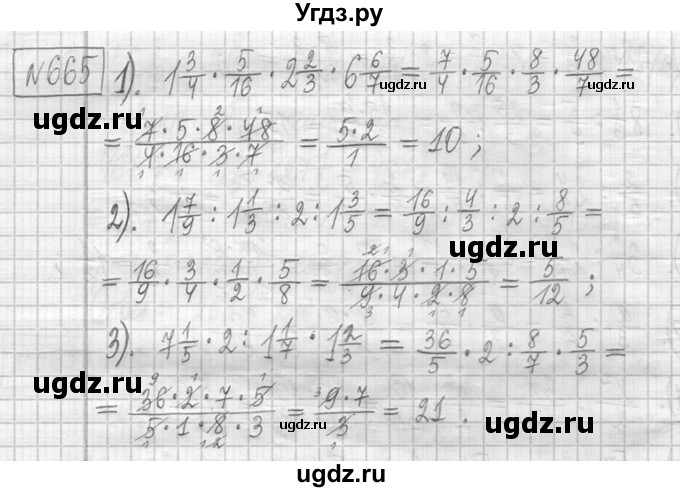 Угдз.ру
№665 1). 1 3/4 · 5/16 · 2 2/3 · 6 6/7 = 7/4 · 5/16 · 8/3 · 48/7 =
ugdz.ru ugdz.ru
= (7·5·8·48)/(4·16·3·7) = (5·2)/1 = 10;
ugdz.ru
2). 1 7/9 : 1 1/3 : 2 : 1 3/5 = 16/9 : 4/3 : 2 : 8/5 =
ugdz.ru
= 16/9 · 3/4 · 1/2 · 5/8 = (16·3·1·5)/(9·4·2·8) = 5/12 ;
ugdz.ru
3). 7 1/5 · 2 : 1 1/7 · 1 2/3 = 36/5 · 2 : 8/7 · 5/3 =
ugdz.ru ugdz.ru
= (36·2·7·5)/(5·1·8·3) = (9·7)/3 = 21 .
ugdz.ru
ugdz.ru